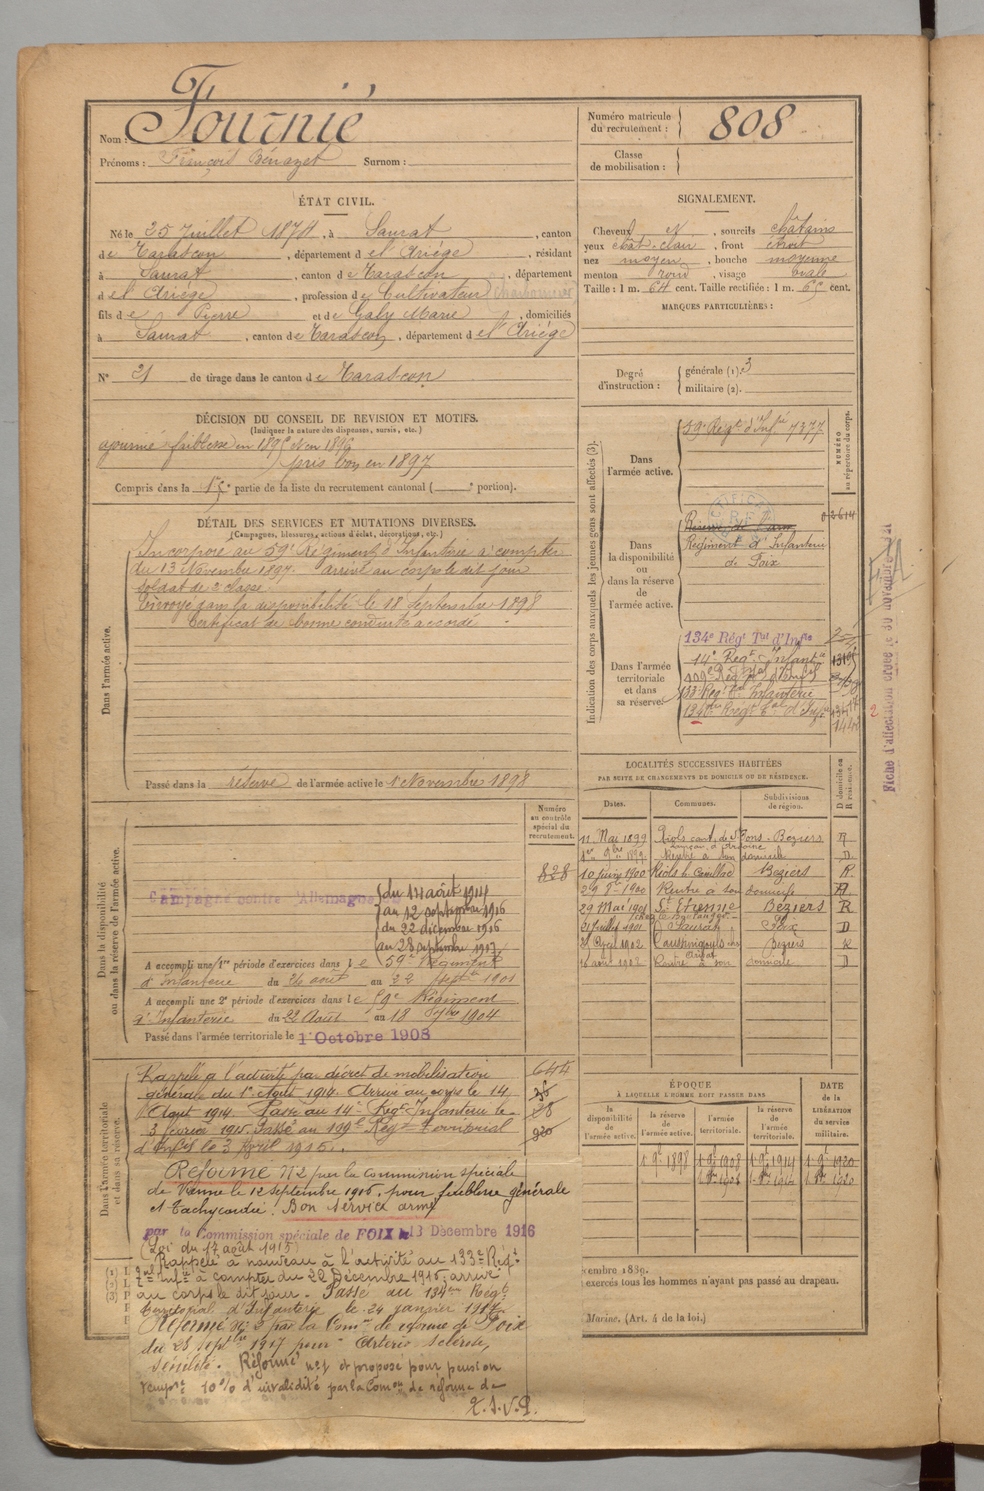 Nom : Fournié
Prénoms : François Bénazet Surnom :
Numéro matricule du recrutement : 808
Classe de mobilisation :
ÉTAT CIVIL.
Né le 25 Juillet 1874, à Saurat, canton
de Tarascon, département de l'Ariége, résidant
à Saurat, canton de Tarascon, département
de l'Ariége, profession de Cultivateur
fils de Pierre et de Galy Marie, domiciliés
à Saurat, canton de Tarascon, département de l'Ariége
N° 21 de tirage dans le canton de Tarascon
SIGNALEMENT.
Cheveux N., sourcils chatains
yeux chat. clair, front étroit
nez moyen, bouche moyenne
menton rond, visage ovale
Taille : 1 m. 64 cent. Taille rectifiée : 1 m. 65 cent.
MARQUES PARTICULIÈRES :
Degré d'instruction : générale (1). 3
militaire (2).
DÉCISION DU CONSEIL DE REVISION ET MOTIFS.
(Indiquer la nature des dispenses, sursis, etc.)
ajourné faiblesse en 1895 et en 1896
pris bon en 1897
Compris dans la partie de la liste du recrutement cantonal ( portion).
DÉTAIL DES SERVICES ET MUTATIONS DIVERSES.
(Campagnes, blessures, actions d'éclat, décorations, etc.)
Dans l'armée active.
Incorporé au 59e Régiment d'Infanterie à compter
du 13 Novembre 1897. arrivé au corps le dit jour
soldat de 2e classe.
Envoyé dans la disponibilité le 18 Septembre 1898
Certificat de bonne conduite accordé.
Passé dans la réserve de l'armée active le 1 Novembre 1898
Indication des corps auxquels les jeunes gens sont affectés (3).
NUMÉRO au répertoire du corps.
Dans l'armée active.
59e Régt d'Infie 7377
Dans la disponibilité ou dans la réserve de l'armée active.
Régiment d'Infanterie
de Foix
Dans l'armée territoriale et dans sa réserve.
134e Régt Tal d'Infie
14e Regt Infantie
133 Reg Tal Infanterie
Fiche d'affectation créée le 30 novembre
LOCALITÉS SUCCESSIVES HABITÉES
PAR SUITE DE CHANGEMENTS DE DOMICILE OU DE RÉSIDENCE.
D domicile ou R résidence.
Dates. Communes. Subdivisions de région.
11 Mai 1899 Riols cant. de St Pons. Béziers R
1er 9bre 1899 Rentré à son domicile D
10 1900 Riols Béziers R
29 8bre 1900 Rentre à son domicile
29 Mai 1901 St Etienne Béziers R
21 Juillet 1901 Saurat Foix D
1902 Béziers R
1902 Rentré à son domicile D
Dans la disponibilité ou dans la réserve de l'armée active.
Numéro au contrôle spécial du recrutement.
828
Campagne contre l'Allemagne
du 14 août 1914
au 12 septembre 1916
du 22 décembre 1916
au 28 septembre 1917
A accompli une 1re période d'exercices dans le 59e Régiment
d'Infanterie du 26 août au 22 Septbre 1901
A accompli une 2e période d'exercices dans le 59e Régiment
d'Infanterie du 22 Août au 18 7bre 1904
Passé dans l'armée territoriale le 1 Octobre 1908
Dans l'armée territoriale et dans sa réserve.
644
Rappelé à l'activité par décret de mobilisation
générale du 1er Août 1914. Arrivé au corps le 14
Août 1914. Passé au 14e Regt Infanterie le
3 février 1915. Passé au 109e Régt Territorial
d'Infie le 3 Avril 1915.
Réformé N°2 par la Commission spéciale
de Vienne le 12 septembre 1916. pour faiblesse générale
et Tachycardie. Bon service armé
par la Commission spéciale de FOIX le 13 Décembre 1916
(Loi du 17 août 1915)
Rappelé à nouveau à l'activité au 133e Régt
Tal Infie à compter du 22 Décembre 1916; arrivé
au corps le dit jour. Passé au 134eme Régt
territorial d'Infanterie le 24 janvier 1917.
Réformé n° 2 par la Comon de réforme de Foix
du 28 septbre 1917 pour Artério sclérose,
sénilité. Réformé n° 1 et proposé pour pension
tempre 10% d'invalidité par la Comon de réforme de
T.S.V.P.
ÉPOQUE
À LAQUELLE L'HOMME DOIT PASSER DANS
la disponibilité de l'armée active. la réserve de l'armée active. l'armée territoriale. la réserve de l'armée territoriale.
DATE de la LIBÉRATION du service militaire.
1 9bre 1898 1 9bre 1908 1 9bre 1914 1 9bre 1920
embre 1889.
exercés tous les hommes n'ayant pas passé au drapeau.
Marine. (Art. 4 de la loi.)